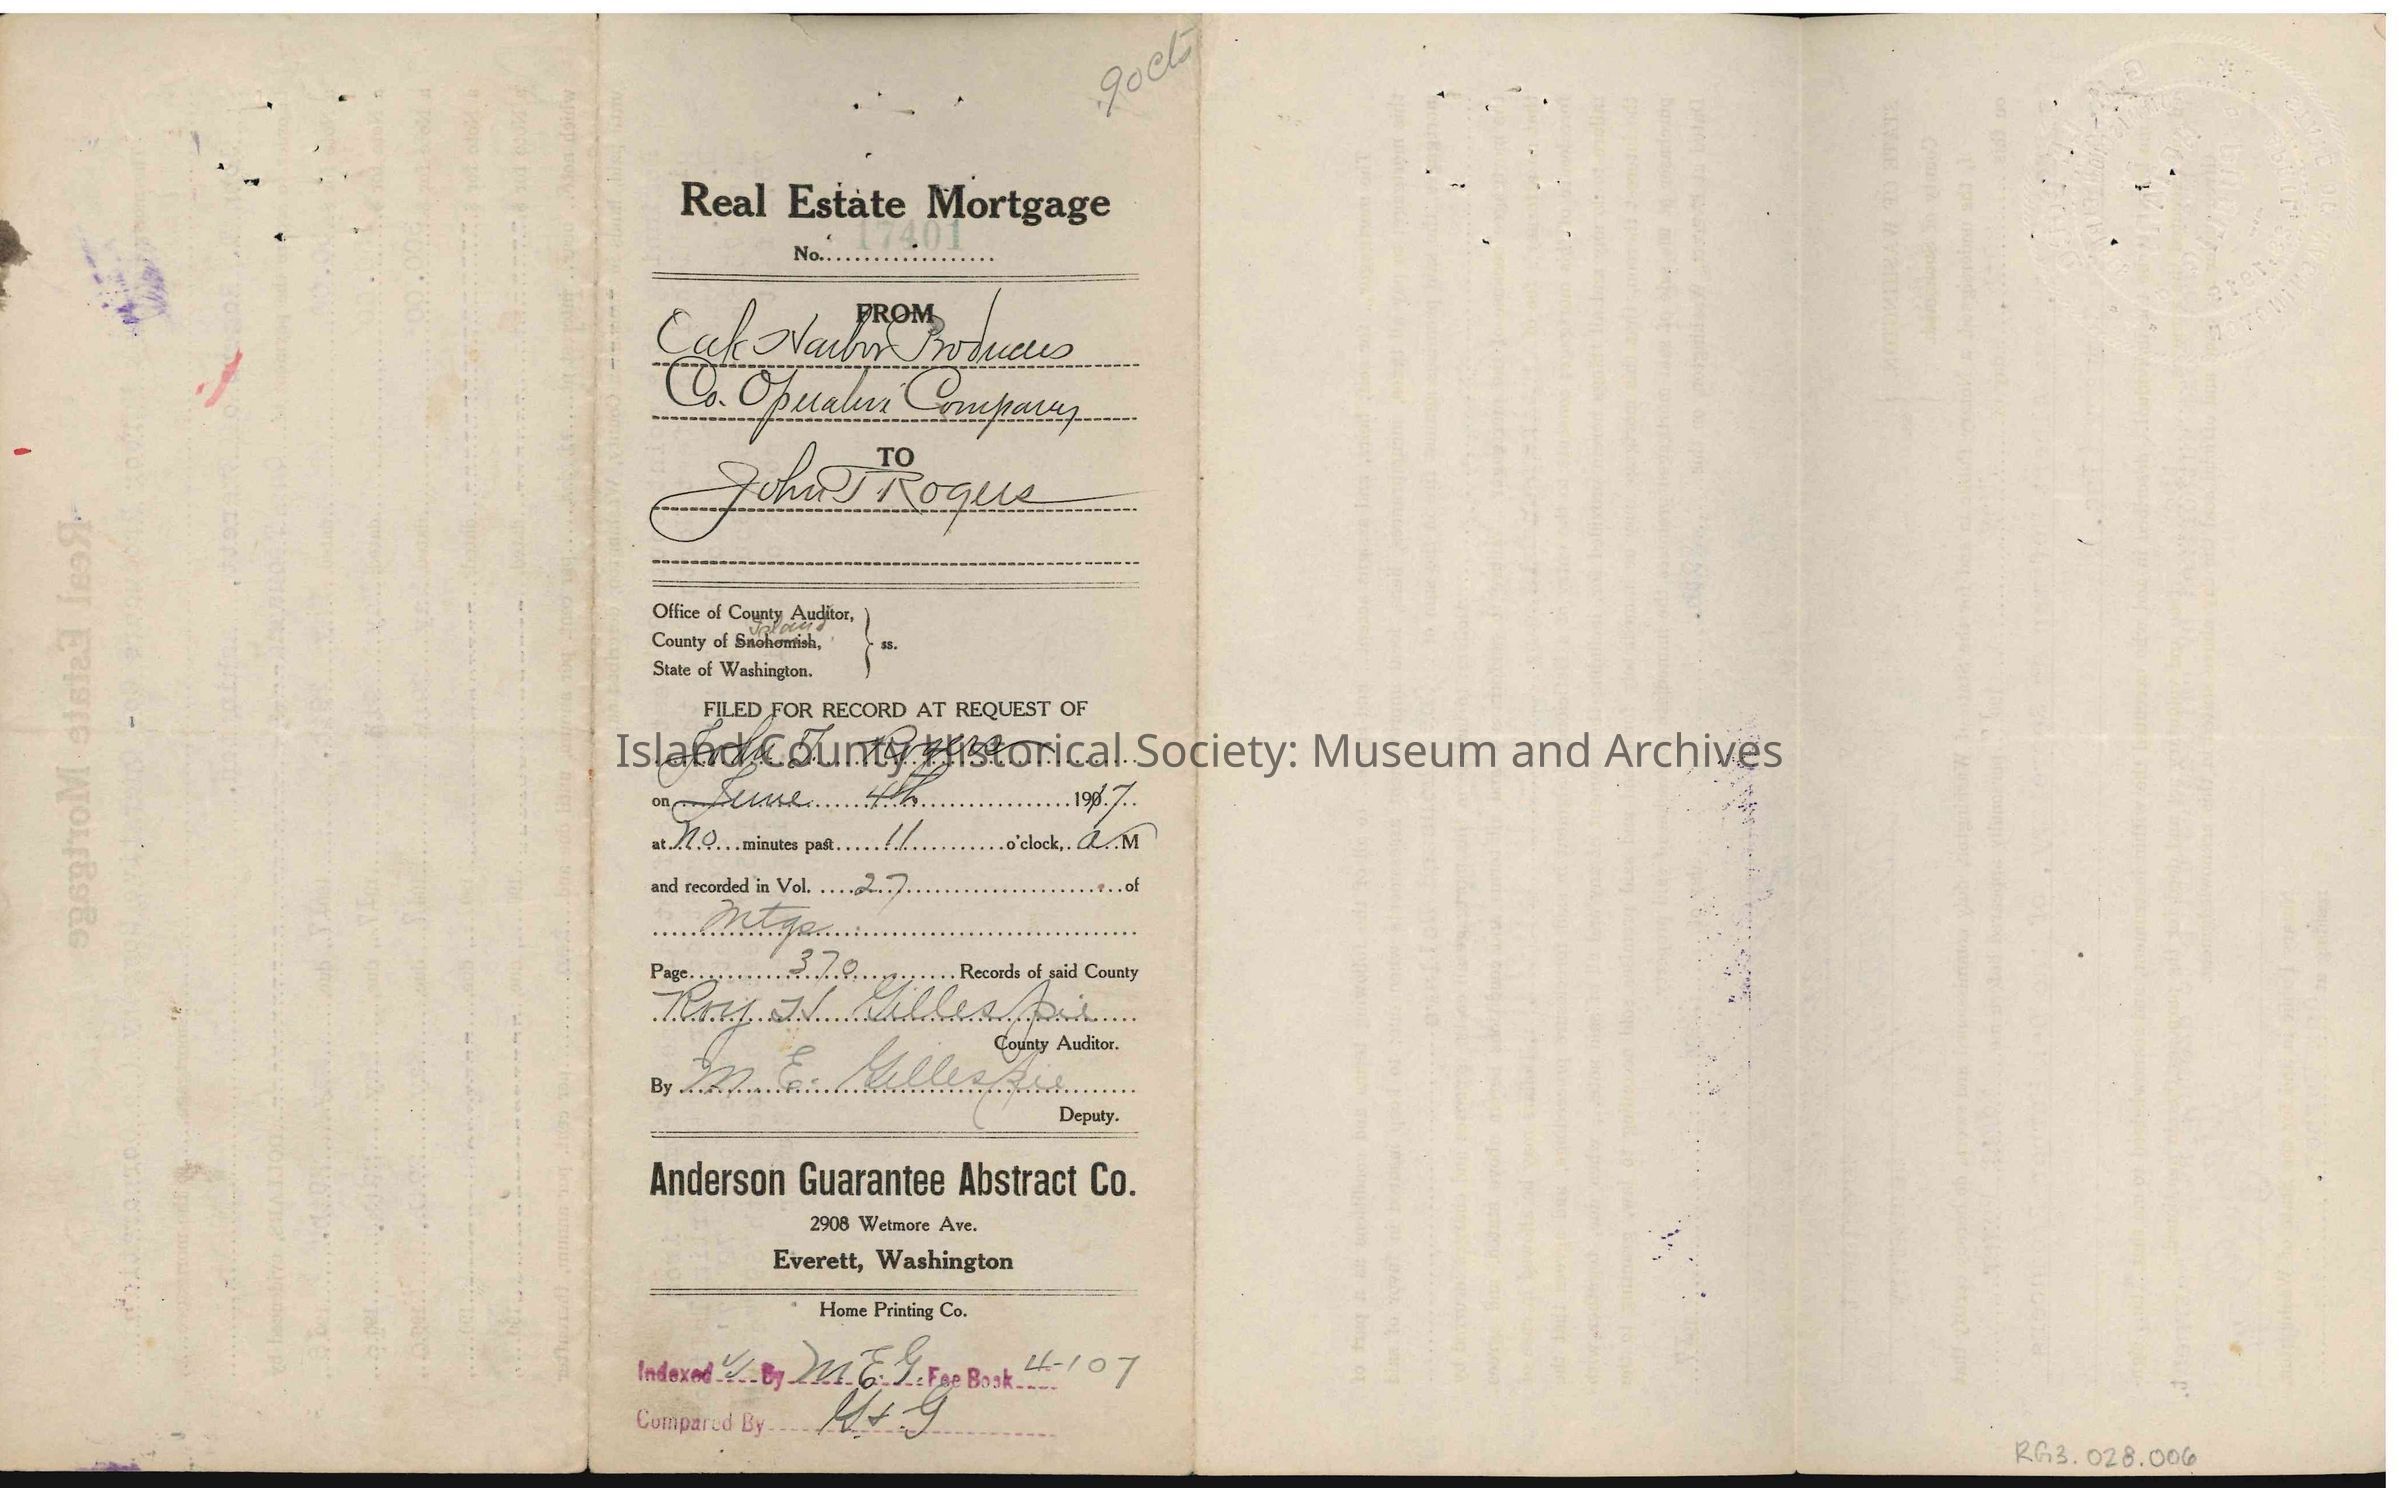 90cts
Real Estate Mortgage
17401
No...................
FROM
Oak Harbor Producers
Co. Operative Company
TO
John T Rogers
Office of County Auditor,
Island
County of Snohomish, } ss.
State of Washington.
FILED FOR RECORD AT REQUEST OF
John T. Rogers
Island County Historical Society: Museum and Archives
on June 4th 1917
at No minutes past 11 o'clock, A. M
and recorded in Vol. 27 of
Mtgs
Page 370 Records of said County
Roy H Gillespie
County Auditor.
By M. E. Gillespie
Deputy.
Anderson Guarantee Abstract Co.
2908 Wetmore Ave.
Everett, Washington
Home Printing Co.
Indexed By M E G. Fee Book 4-107
Compared By
RG3.028.006